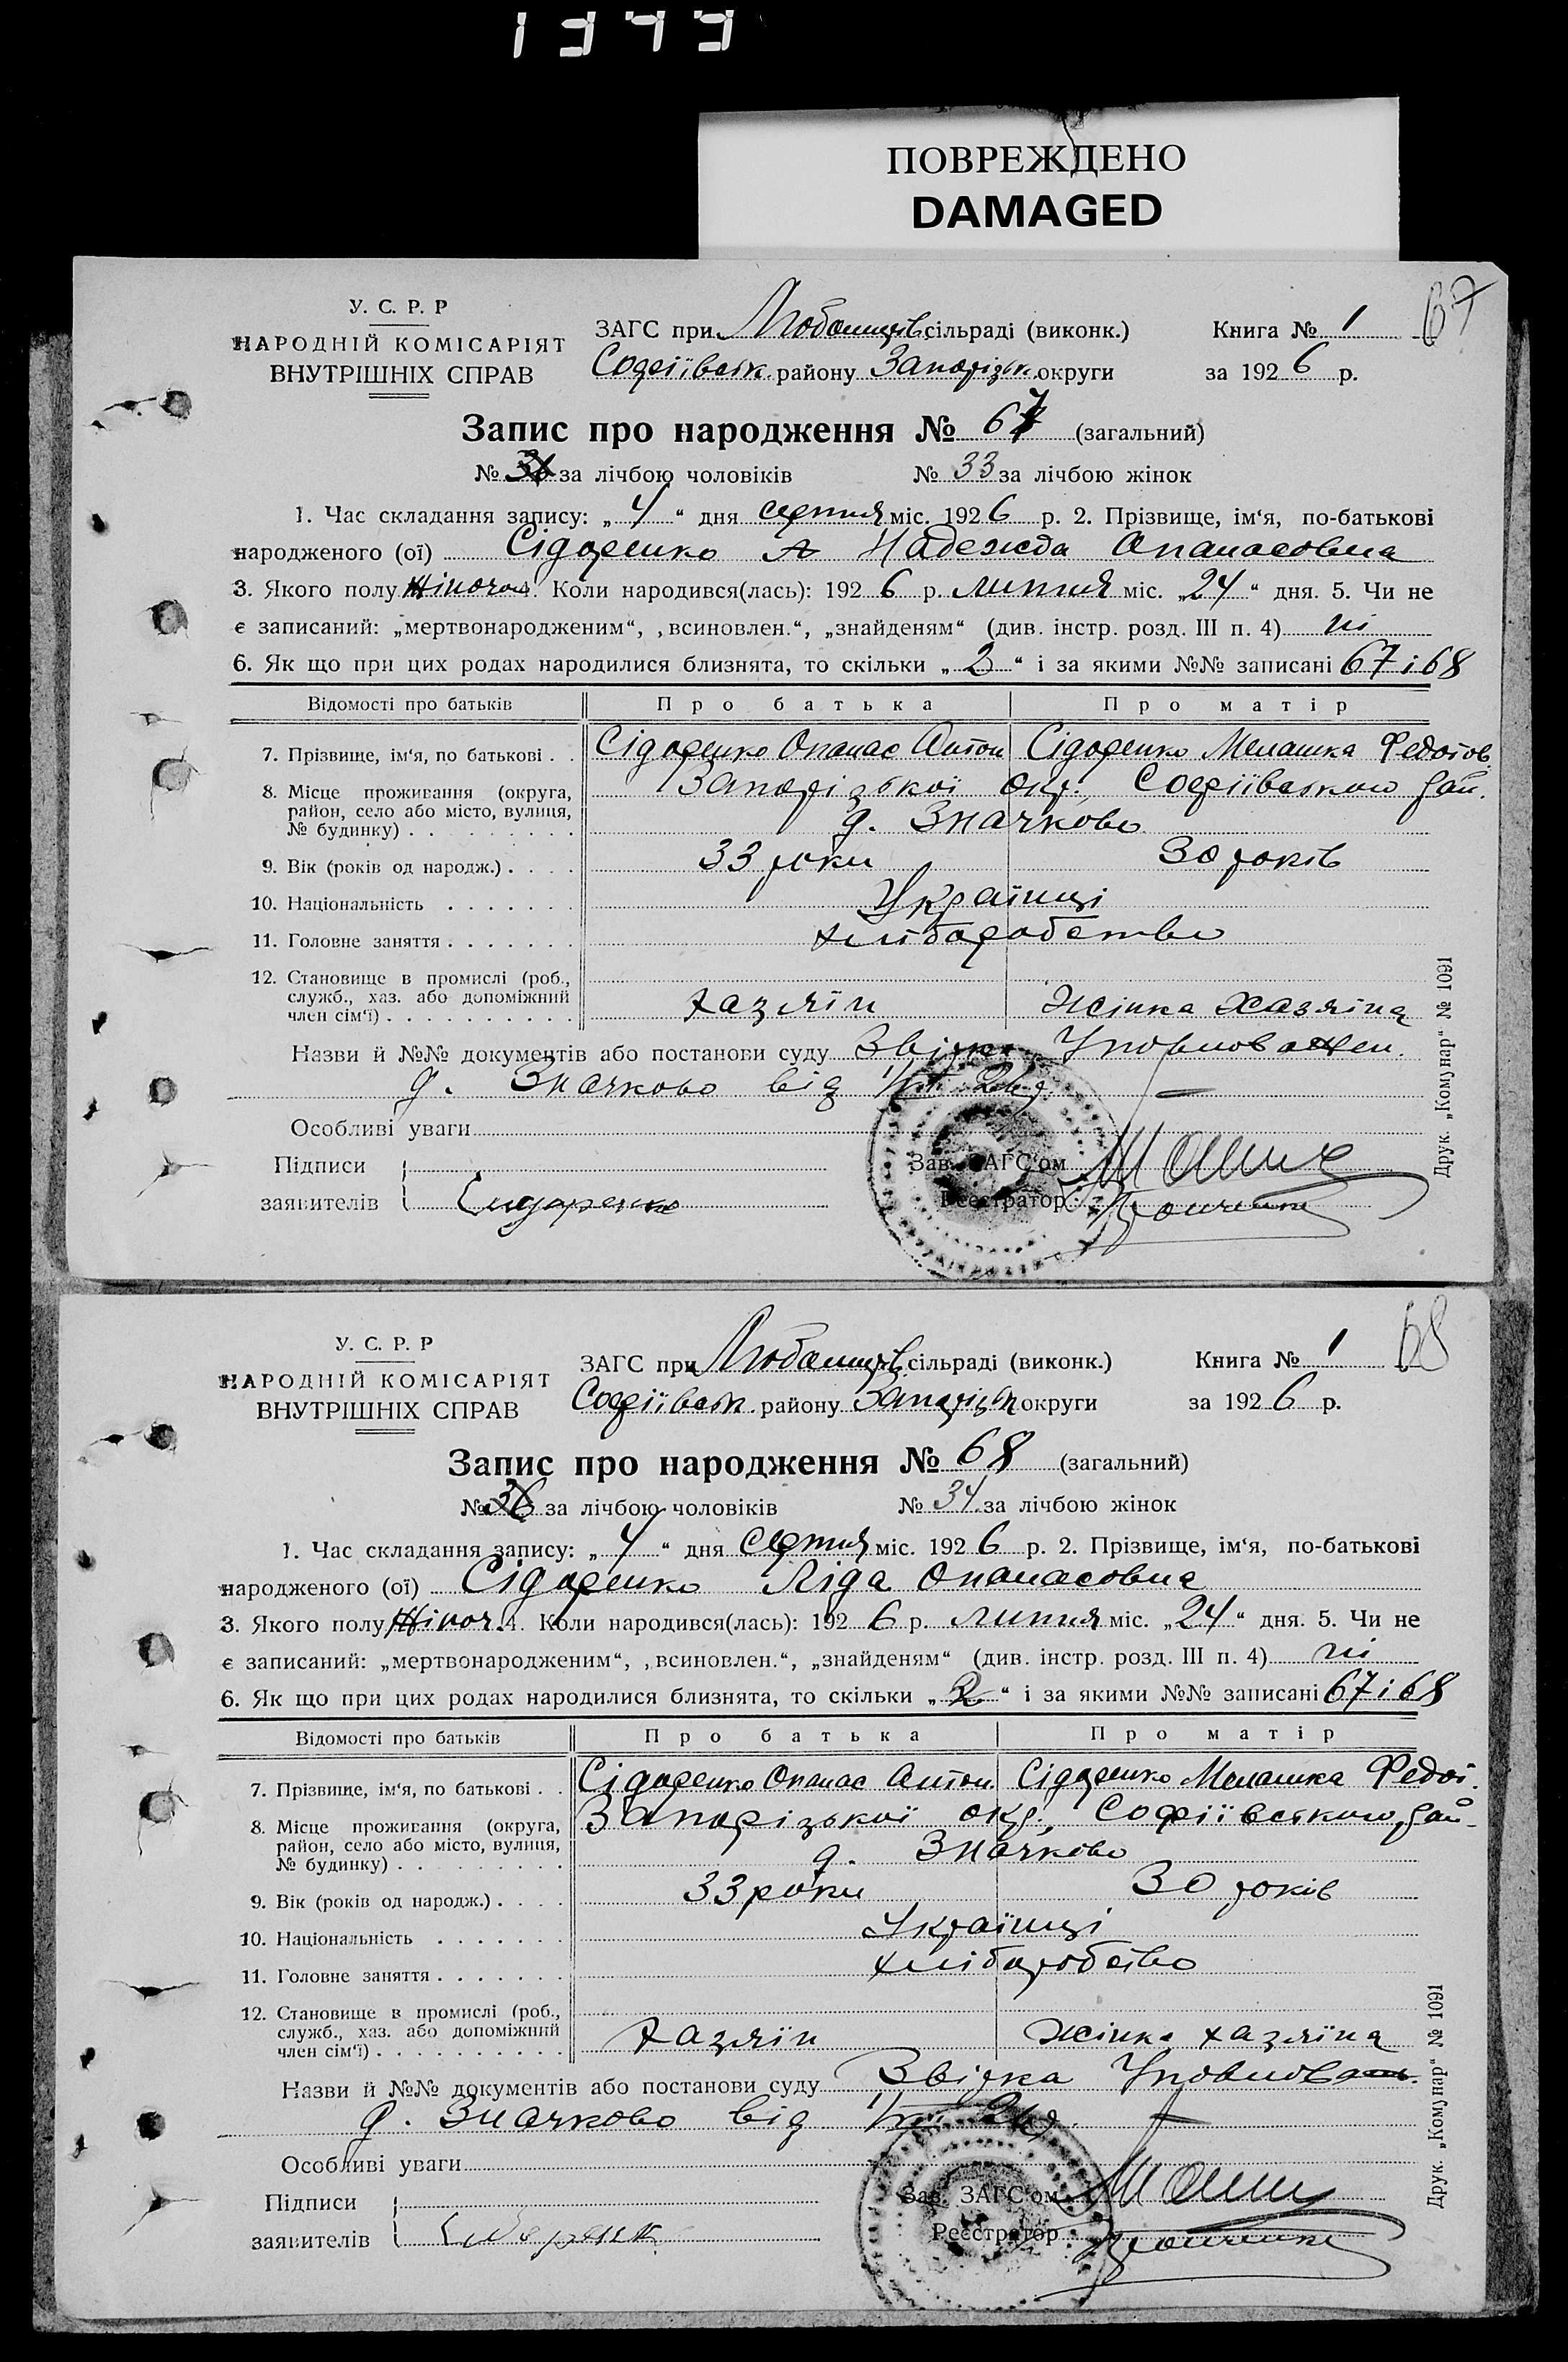 1979
ПОВРЕЖДЕНО
DAMAGED
67
У. С. Р. Р
НАРОДНІЙ КОМІСАРІЯТ
ВНУТРІШНІХ СПРАВ
ЗАГС при Любомирів. сільраді (виконк.) Книга № 1
Софіївськ. району Запорізьк. округи за 1926 р.
Запис про народження № 67 (загальний)
№ 36 за лічбою чоловіків № 33 за лічбою жінок
1. Час складання запису: „4“ дня серпня міс. 1926 р. 2. Прізвище, ім‘я, по-батькові
народженого (ої) Сідоренко Надежда Опанасовна
3. Якого полу Жіночої 4. Коли народився(лась): 1926 р. липня міс. „24“ дня. 5. Чи не
є записаний: „мертвонародженим“, „всиновлен.“, „знайденям“ (див. інстр. розд. III п. 4) ні
6. Як що при цих родах народилися близнята, то скільки „2“ і за якими №№ записані 67 і 68
Відомості про батьків Про батька Про матір
7. Прізвище, ім‘я, по батькові . . Сідоренко Опанас Антон Сідоренко Мелашка Федотов.
8. Місце проживання (округа, Запорізької окр., Софіївського рай.
район, село або місто, вулиця,
№ будинку) . . . . . . . . . д. Значково
9. Вік (років од народж.) . . . . 33 роки 30 років
10. Національність . . . . . . . Українці
11. Головне заняття . . . . . . . хліборобство
12. Становище в промислі (роб.,
служб., хаз. або допоміжний
член сім‘ї) . . . . . . . . . . хазяїн Жінка хазяїна
Назви й №№ документів або постанови суду Звідка Уповноважен.
д. Значково від
Особливі уваги
Підписи Зав. ЗАГС‘ом
заявителів Сидоренко Реєстратор
Друк. „Комунар“ № 1091
68
У. С. Р. Р
НАРОДНІЙ КОМІСАРІЯТ
ВНУТРІШНІХ СПРАВ
ЗАГС при Любомирів. сільраді (виконк.) Книга № 1
Софіївськ. району Запорізьк округи за 1926 р.
Запис про народження № 68 (загальний)
№ 36 за лічбою чоловіків № 34 за лічбою жінок
1. Час складання запису: „4“ дня серпня міс. 1926 р. 2. Прізвище, ім‘я, по-батькові
народженого (ої) Сідоренко Ліда Опанасовна
3. Якого полу Жіноч. 4. Коли народився(лась): 1926 р. липня міс. „24“ дня. 5. Чи не
є записаний: „мертвонародженим“, „всиновлен.“, „знайденям“ (див. інстр. розд. III п. 4) ні
6. Як що при цих родах народилися близнята, то скільки „2“ і за якими №№ записані 67 і 68
Відомості про батьків Про батька Про матір
7. Прізвище, ім‘я, по батькові . . Сідоренко Опанас Антон Сідоренко Мелашка Федот.
8. Місце проживання (округа, Запорізької окр., Софіївського рай.
район, село або місто, вулиця,
№ будинку) . . . . . . . . . д. Значково
9. Вік (років од народж.) . . . . 33 роки 30 років
10. Національність . . . . . . . Українці
11. Головне заняття . . . . . . . хліборобство
12. Становище в промислі (роб.,
служб., хаз. або допоміжний
член сім‘ї) . . . . . . . . . . хазяїн жінка хазяїна
Назви й №№ документів або постанови суду Звідка Уповноваж.
д. Значково від
Особливі уваги
Підписи Зав. ЗАГС‘ом
заявителів Реєстратор
Друк. „Комунар“ № 1091